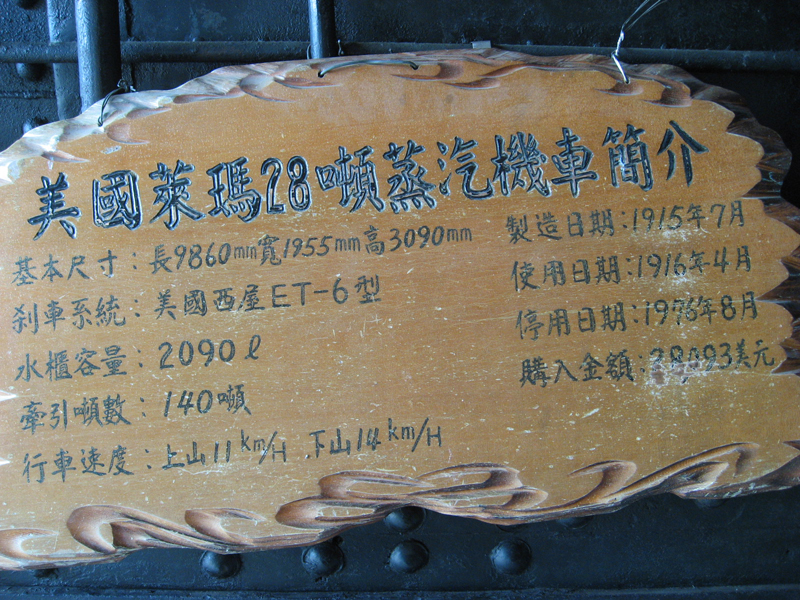 美國萊瑪28噸蒸汽機車簡介
基本尺寸：長9860mm寬1955mm高3090mm
剎車系統：美國西屋ET-6型
水櫃容量：2090ℓ
牽引噸數：140噸
行車速度：上山11km/H．下山14km/H
製造日期：1915年7月
使用日期：1916年4月
停用日期：1976年8月
購入金額：28,093美元